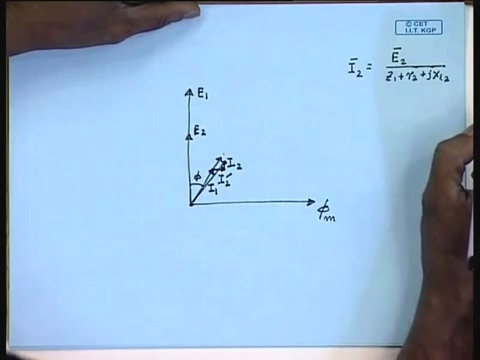 © CET
I.I.T. KGP
Ī₂ = Ē₂
z₁+r₂+jx₁₂
E₁
E₂
I₂
φ
I₂′
I₁
φm